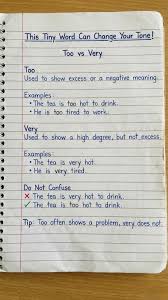 This Tiny Word Can Change Your Tone!
Too vs Very
Too
Used to show excess or a negative meaning.
Examples:
• The tea is too hot to drink.
• He is too tired to work.
Very
Used to show a high degree, but not excess.
Examples:
• The tea is very hot.
• He is very tired.
Do Not Confuse
✗ The tea is very hot to drink.
✓ The tea is too hot to drink.
Tip: Too often shows a problem, very does not.